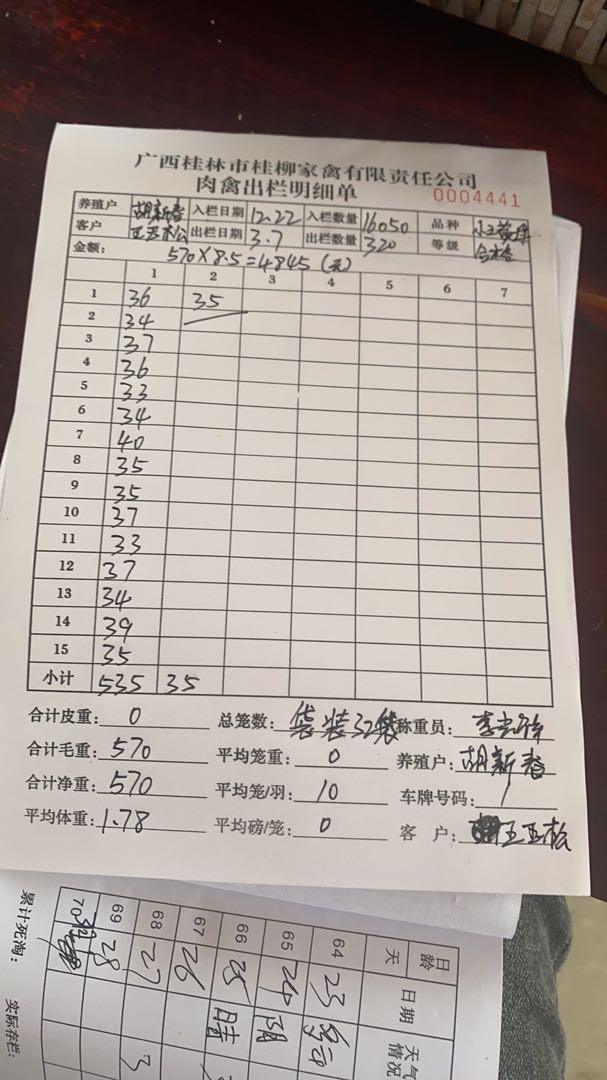 广西桂林市桂柳家禽有限责任公司
肉禽出栏明细单
0004441
养殖户 胡新春 入栏日期 12.22 入栏数量 16050 品种
客户 王玉松 出栏日期 3.7 出栏数量 320 等级 合格
金额: 570×8.5=4845(元)
1 2 3 4 5 6 7
1 36 35
2 34
3 37
4 36
5 33
6 34
7 40
8 35
9 35
10 37
11 33
12 37
13 34
14 39
15 35
小计 535 35
合计皮重: 0 总笼数: 袋装32袋 称重员:
合计毛重: 570 平均笼重: 0 养殖户: 胡新春
合计净重: 570 平均笼/羽: 10 车牌号码: /
平均体重: 1.78 平均磅/笼: 0 客户: 王玉松
日龄 64 65 66 67 68 69 70
天
日期 23 24 25 26 27 28
天气情况 多云 阴 晴
3
累计死淘:
实际存栏: